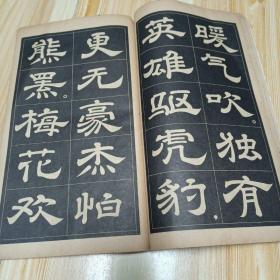 暖气吹。独有
英雄驱虎豹，
更无豪杰怕
熊罴。梅花欢